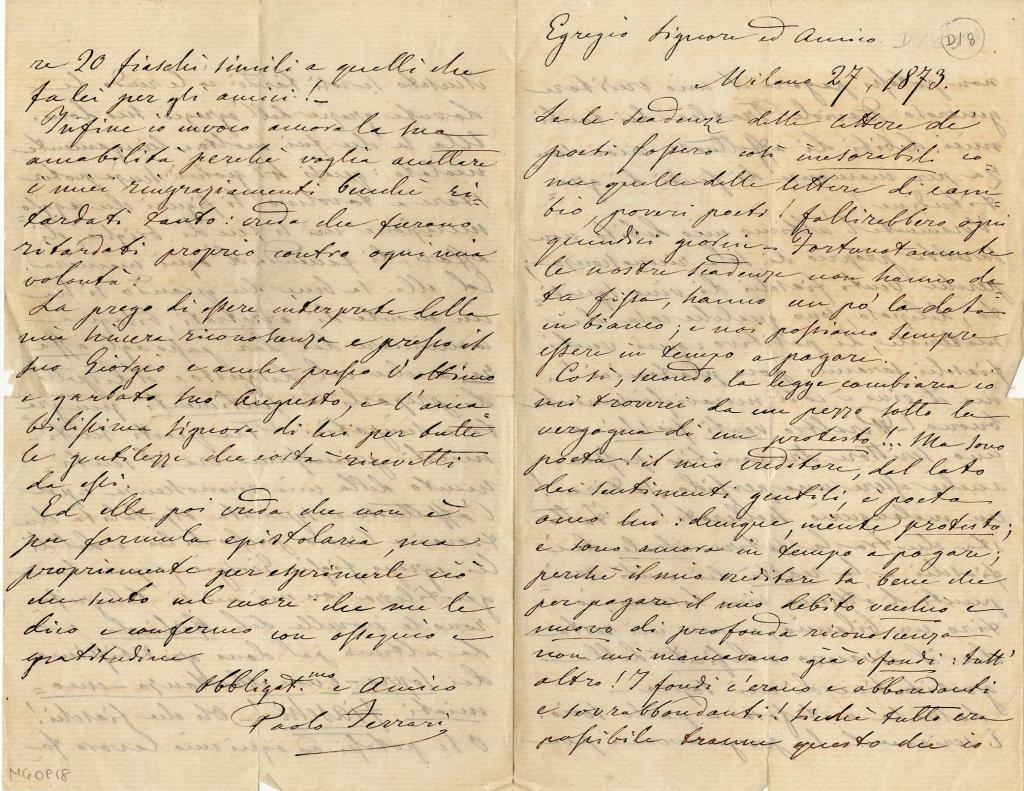 Egregio Signore ed Amico
D18
Milano 27, 1873.
Se le scadenze delle lettere de'
poeti fossero così inesorabili co=
me quelle delle lettere di cam=
bio poveri poeti! fallirebbero ogni
quindici giorni — Fortunatamente
le nostre scadenze non hanno da
ta fissa, hanno un pò la data
in bianco; e noi possiamo sempre
essere in tempo a pagare.
Così, secondo la legge cambiaria io
mi troverei da un pezzo sotto la
vergogna di un protesto!.. Ma sono
poeta! il mio creditore, dal lato
dei sentimenti gentili, è poeta
anco lui: dunque, niente protesto;
e sono ancora in tempo a pagare;
perchè il mio creditore sa bene che
per pagare il mio debito vecchio e
nuovo di profonda riconoscenza
non mi mancavano già i fondi: tutt'
altro! I fondi c'erano e abbondanti
e sovrabbondanti! Sicchè tutto era
possibile tranne questo che io
re 20 fiaschi simili a quelli che
fa lei per gli amici! —
Infine io invoco ancora la sua
amabilità, perchè voglia accettare
i miei ringraziamenti benchè ri=
tardati tanto: creda che furono
ritardati proprio contro ogni mia
volontà!
La prego di essere interprete della
mia sincera riconoscenza e presso il
suo Giorgio e anche presso l'ottimo
e garbato suo Augusto, e l'ama=
bilissima Signora di lui per tutte
le gentilezze che costà ricevetti
da essi.
Ed ella poi creda che non è
per formula epistolaria, ma
propriamente per esprimerle ciò
che sento nel cuore che me le
dico e confermo con ossequio e
gratitudine
Obbligat.mo e Amico
Paolo Ferrari
MG0918